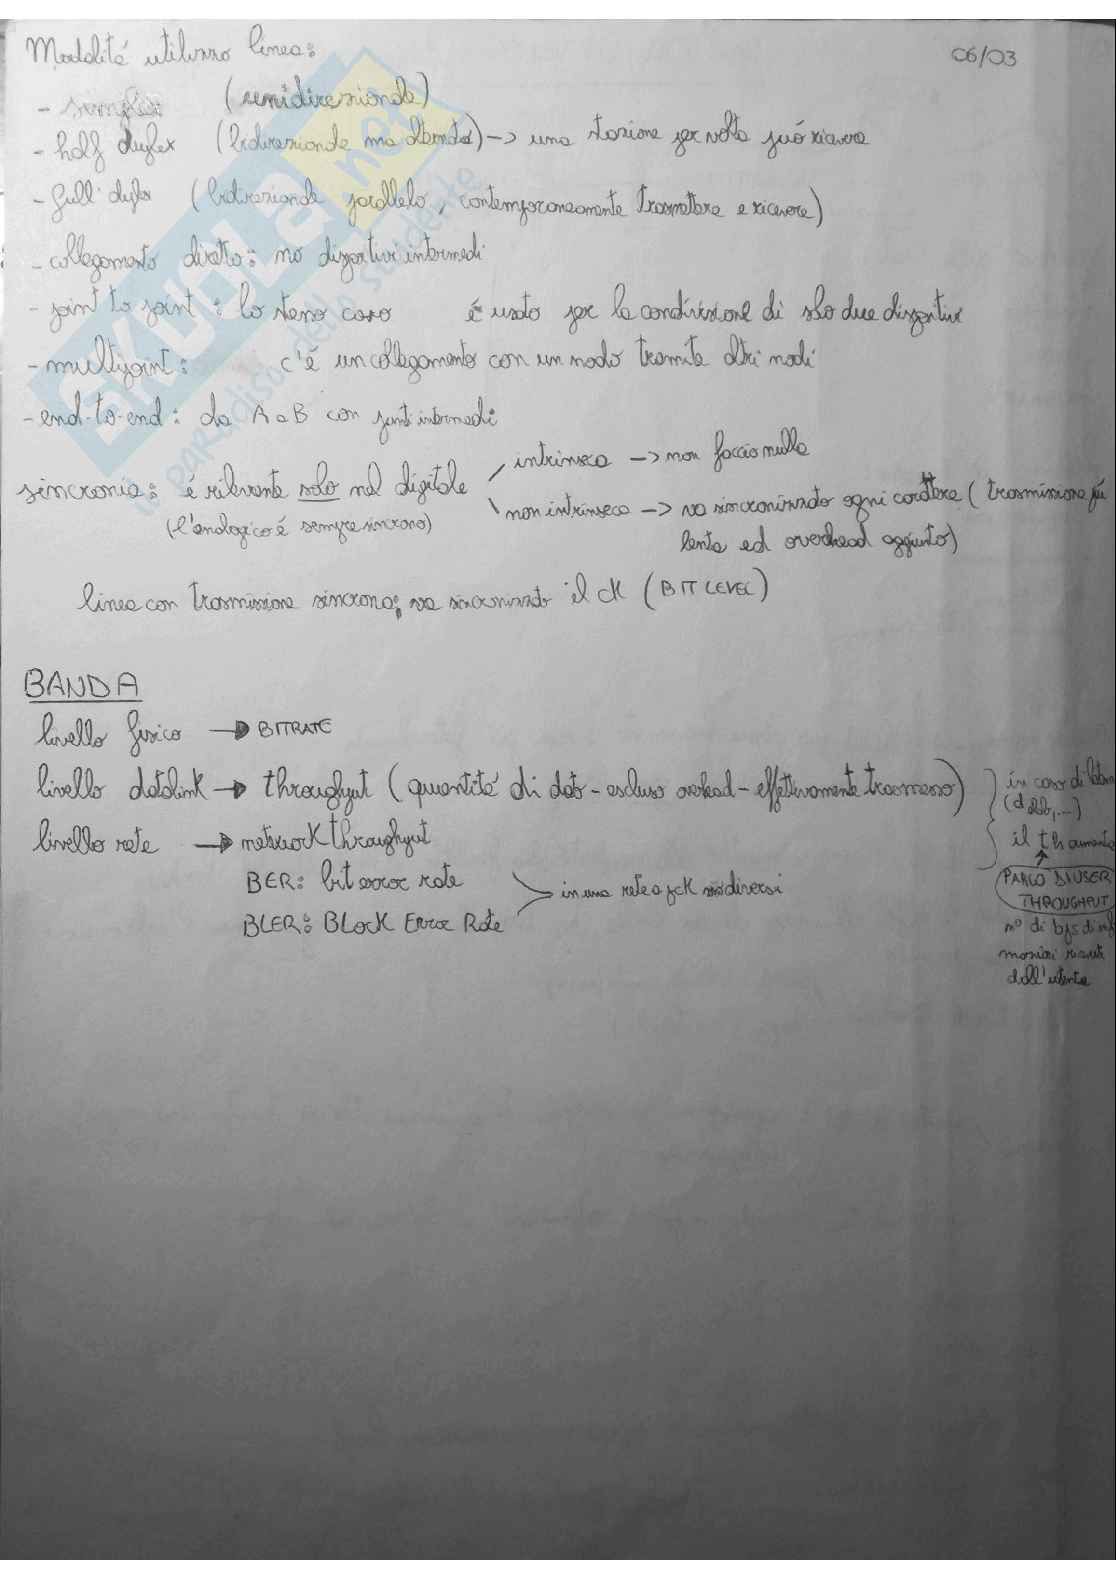 Modalità utilizzo linea: 06/03
- simplex (semidirezionale)
- half duplex (bidirezionale ma alternata) -> una stazione per volta può ricevere
- full duplex (bidirezionale parallelo, contemporaneamente trasmettere e ricevere)
- collegamento diretto: no dispositivi intermedi
- point to point: lo stesso caso è usato per la condivisione di solo due dispositivi
- multipoint: c'è un collegamento con un nodo tramite altri nodi
- end-to-end: da A a B con punti intermedi
sincronia: è rilevante solo nel digitale
(l'analogico è sempre sincrono)
intrinseca -> non faccio nulla
non intrinseca -> va sincronizzato ogni carattere (trasmissione più
lenta ed overhead aggiunto)
linea con trasmissione sincrona: va sincronizzato il CK (BIT LEVEL)
BANDA
livello fisico -> BITRATE
livello datalink -> throughput (quantità di dati - escluso overhead - effettivamente trasmesso)
livello rete -> network throughput
BER: bit error rate
BLER: BLOCK Error Rate
in una rete a pck sono diversi
in caso di
il th aumenta
PARLO DI USER
THROUGHPUT
n° di bps di
dall'utente
SKUOLA.net
il paradiso dello studente